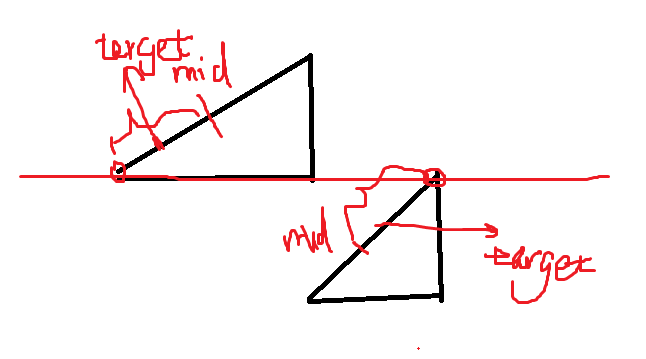 target
mid
mid
target